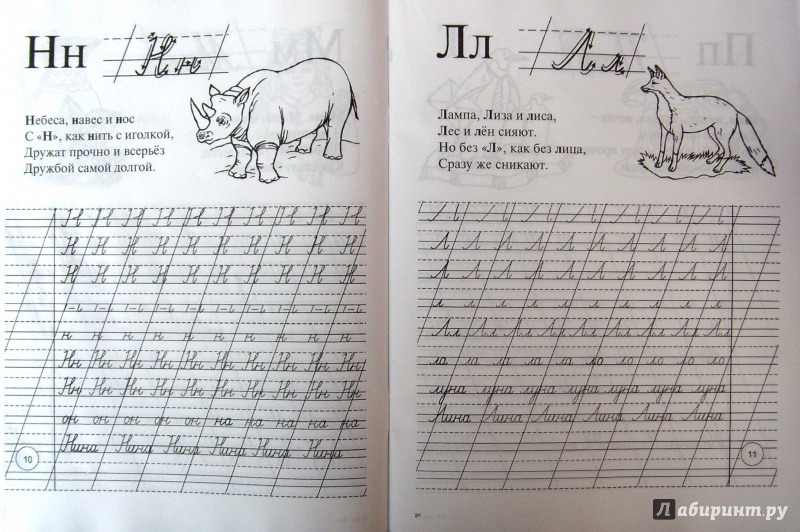 Нн Нн
Небеса, навес и нос
С «Н», как нить с иголкой,
Дружат прочно и всерьёз
Дружбой самой долгой.
Н Н Н Н Н Н Н Н Н
Н Н Н Н Н Н Н Н Н
н н н н н н н н н
Нн Нн Нн Нн Нн Нн Нн Нн Нн
Нн Нн Нн Нн Нн Нн Нн Нн Нн
он он он он на на на на на
Нина Нина Нина Нина Нина Нина
10
Лл Лл
Лампа, Лиза и лиса,
Лес и лён сияют.
Но без «Л», как без лица,
Сразу же сникают.
Л Л Л Л Л Л Л Л Л
Л Л Л Л Л Л Л Л Л
л л л л л л л
Лл Лл Лл Лл Лл Лл Лл Лл Лл
ла ла ла ла ло ло ло ло
луна луна луна луна луна луна луна
Лина Лина Лина Лина Лина Лина
11
Лабиринт.ру